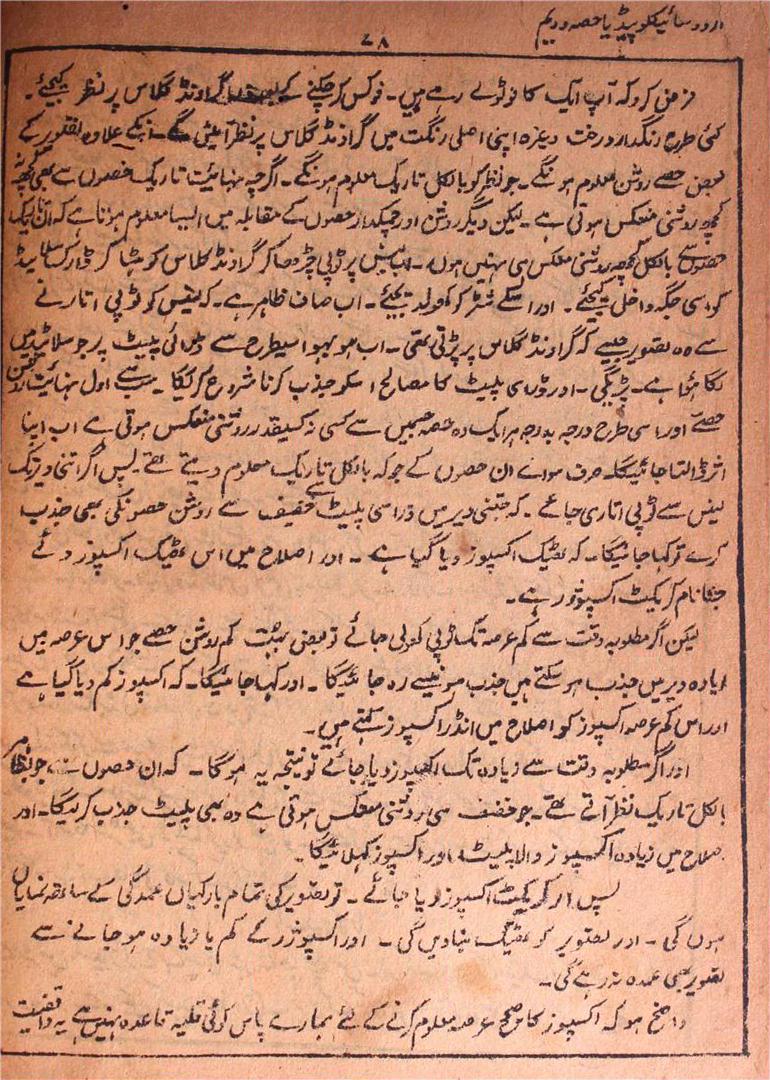 اردو سائیکلوپیڈیا حصہ دویم
۷۸
فرض کرو کہ آپ ایک کا فوٹو لے رہے ہیں۔ فوکس کر چکنے کے بعد گراونڈ گلاس پر نظر کیجئے۔
کئی طرح رنگدار درخت وغیرہ اپنی اصلی رنگت میں گراونڈ گلاس پر نظر آئیں گے۔ انکے علاوہ تصویر کے
بعض حصے روشن معلوم ہونگے۔ جو نظر کو بالکل تاریک معلوم ہونگے۔ اگرچہ نہائیت تاریک حصوں سے بھی کچھ نہ
کچھ روشنی منعکس ہوتی ہے۔ لیکن دیگر روشن اور چمکدار حصوں کے مقابلہ میں ایسا معلوم ہوتا ہے کہ ان تاریک
حصوں سے بالکل کچھ روشنی منعکس ہی نہیں ہوں۔ لینس پر ٹوپی چڑھا کر گراونڈ گلاس کو ہٹا کر ڈارک سلائیڈ
کو اسی جگہ داخل کیجئے۔ اور اسکے شٹر کو کھولد یجئے۔ اب صاف ظاہر ہے۔ کہ لینس کو ٹوپی اتارنے
سے وہ تصویر جیسے کہ گراونڈ گلاس پر پڑتی تھی۔ اب ہو بہو اسیطرح سے ڈرائی پلیٹ پر جو سلائیڈ میں
لگا ہوا ہے۔ پڑیگی۔ اور ڈرای پلیٹ کا مصالح اسکو جذب کرنا شروع کریگا۔ سب سے اول نہائیت روشن
حصے اور اسی طرح درجہ بدرجہ ہر ایک وہ حصہ جسمیں سے کسی نہ کسیقدر روشنی منعکس ہوتی ہے اب اپنا
اثر ڈالتا جائیگا۔ صرف سوائے ان حصوں کے جو کہ بالکل تاریک معلوم دیتے تھے۔ پس اگر اتنی دیر تک
لینس سے ٹوپی اتاری جائے۔ کہ جتنی دیر میں ڈرائی پلیٹ خفیف سے روشن حصونکی بھی جذب
کرے تو کہا جائیگا۔ کہ ٹھیک اکسپوز دیا گیا ہے۔ اور اصلاح میں اس ٹھیک اکسپوز دئے
جنکا نام کریکٹ اکسپوژر ہے۔
لیکن اگر مطلوبہ وقت سے کم عرصہ تک ٹوپی کھولی جائے تو بعض بہت کم روشن حصے جو اس عرصہ میں
زیادہ دیر میں جذب ہو سکتے ہیں جذب ہونیسے رہ جائیگا۔ اور کہا جائیگا۔ کہ اکسپوز کم دیا گیا ہے
اور اس کم عرصہ اکسپوز کو اصلاح میں انڈر اکسپوز کہتے ہیں۔
اور اگر مطلوبہ وقت سے زیادہ تک اکسپوز دیا جائے تو نتیجہ یہ ہوگا۔ کہ ان حصوں سے جو بظاہر
بالکل تاریک نظر آتے تھے۔ جو خفیف سی روشنی منعکس ہوتی ہے وہ بھی پلیٹ جذب کریگا۔ اور
اصلاح میں زیادہ اکسپوز والا پلیٹ اور اکسپوز کہلائیگا۔
پس اگر کریکٹ اکسپوز دیا جائے۔ تو تصویر کی تمام باریکیاں عمدگی کے ساتھ نمایاں
ہوں گی۔ اور تصویر کو ٹھیک بنادیں گی۔ اور اکسپوژر کے کم یا زیادہ ہو جانے سے
تصویر بھی عمدہ نہ رہے گی۔
واضح ہو کہ اکسپوز کا صحیح عرصہ معلوم کرنے کے لئے ہمارے پاس کوئی قلیہ قاعدہ نہیں ہے یہ واقفیت